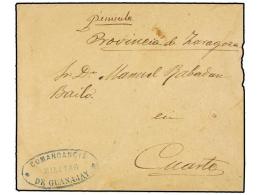 Península
Provincia de Zaragoza
Sr. Dn. Manuel Rabadan
Bailo
en
Cuarte
COMANDANCIA
MILITAR
DE GUANAJAY